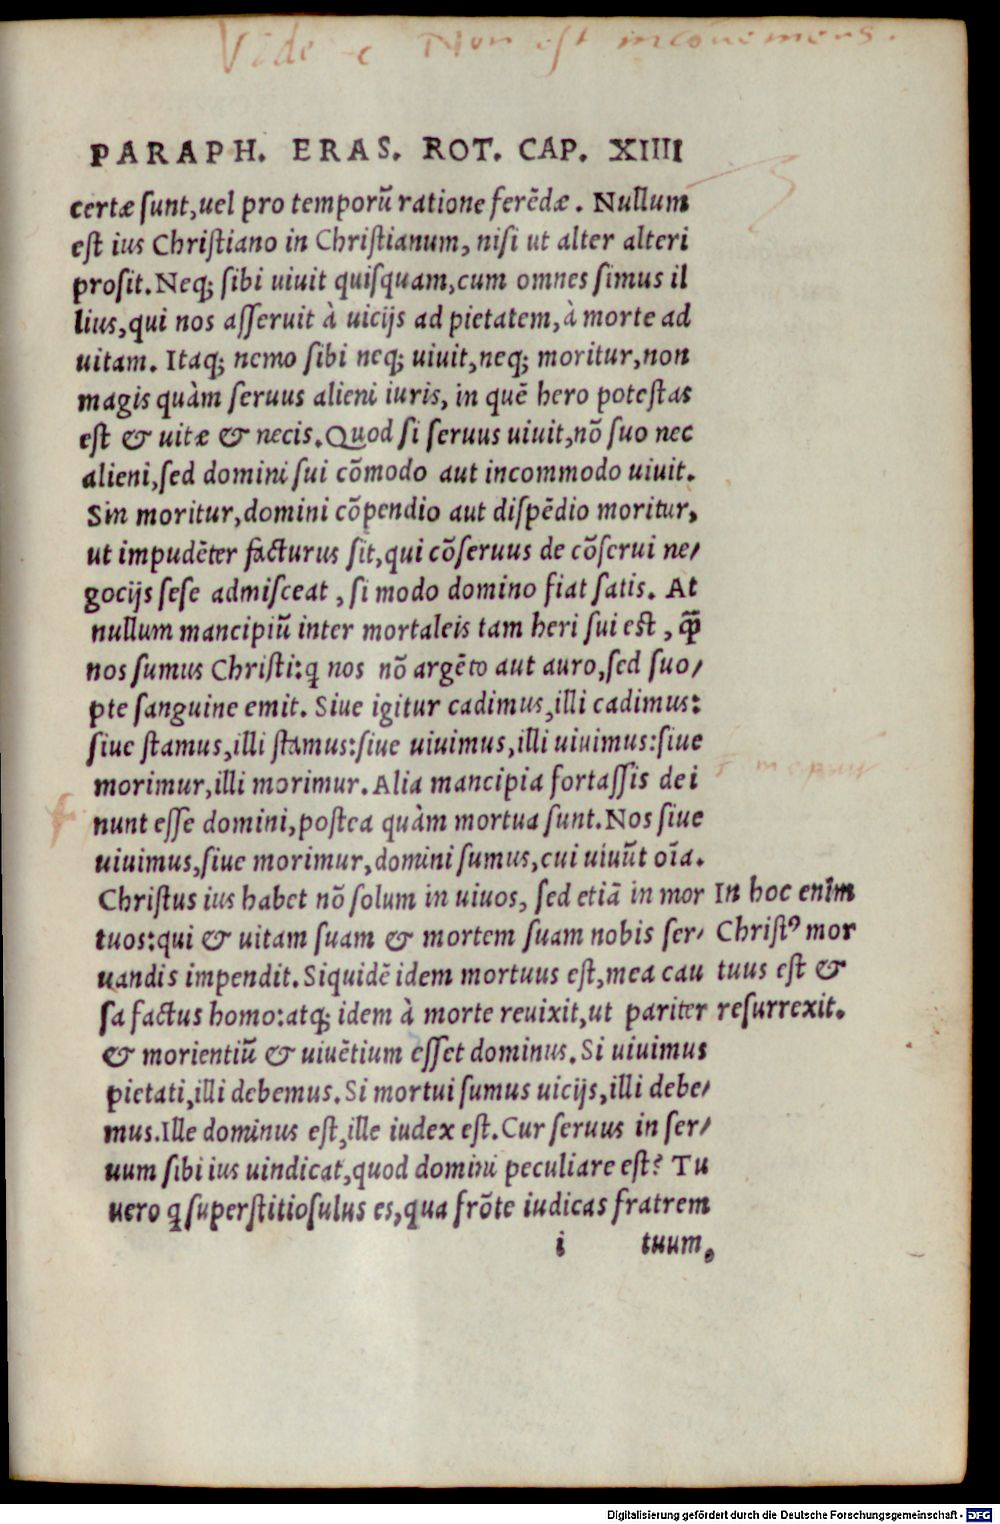 Vide
Non est
PARAPH. ERAS. ROT. CAP. XIIII
certæ sunt,uel pro temporũ ratione ferẽdæ. Nullum
est ius Christiano in Christianum, nisi ut alter alteri
prosit. Neq; sibi uiuit quisquam,cum omnes simus il
lius,qui nos asseruit à uicijs ad pietatem,à morte ad
uitam. Itaq; nemo sibi neq; uiuit,neq; moritur,non
magis quàm seruus alieni iuris, in quẽ hero potestas
est & uitæ & necis.Quod si seruus uiuit,nõ suo nec
alieni,sed domini sui cõmodo aut incommodo uiuit.
Sin moritur,domini cõpendio aut dispẽdio moritur,
ut impudẽter facturus sit,qui cõseruus de cõserui ne/
gocijs sese admisceat, si modo domino fiat satis. At
nullum mancipiũ inter mortaleis tam heri sui est, q̃
nos sumus Christi:q nos nõ argẽto aut auro,sed suo/
pte sanguine emit. Siue igitur cadimus,illi cadimus:
siue stamus,illi stamus:siue uiuimus,illi uiuimus:siue
morimur,illi morimur. Alia mancipia fortassis dei
nunt esse domini,postea quàm mortua sunt.Nos siue
uiuimus,siue morimur,domini sumus,cui uiuũt oĩa.
Christus ius habet nõ solum in uiuos, sed etiã in mor
tuos:qui & uitam suam & mortem suam nobis ser/
uandis impendit. Siquidẽ idem mortuus est,mea cau
sa factus homo:atq; idem à morte reuixit,ut pariter
& morientiũ & uiuẽtium esset dominus. Si uiuimus
pietati,illi debemus. Si mortui sumus uicijs,illi debe/
mus.Ille dominus est,ille iudex est.Cur seruus in ser/
uum sibi ius uindicat,quod domini peculiare est? Tu
uero q superstitiosulus es,qua frõte iudicas fratrem
i tuum,
In hoc enĩm
Christꝰ mor
tuus est &
resurrexit.
Digitalisierung gefördert durch die Deutsche Forschungsgemeinschaft - DFG